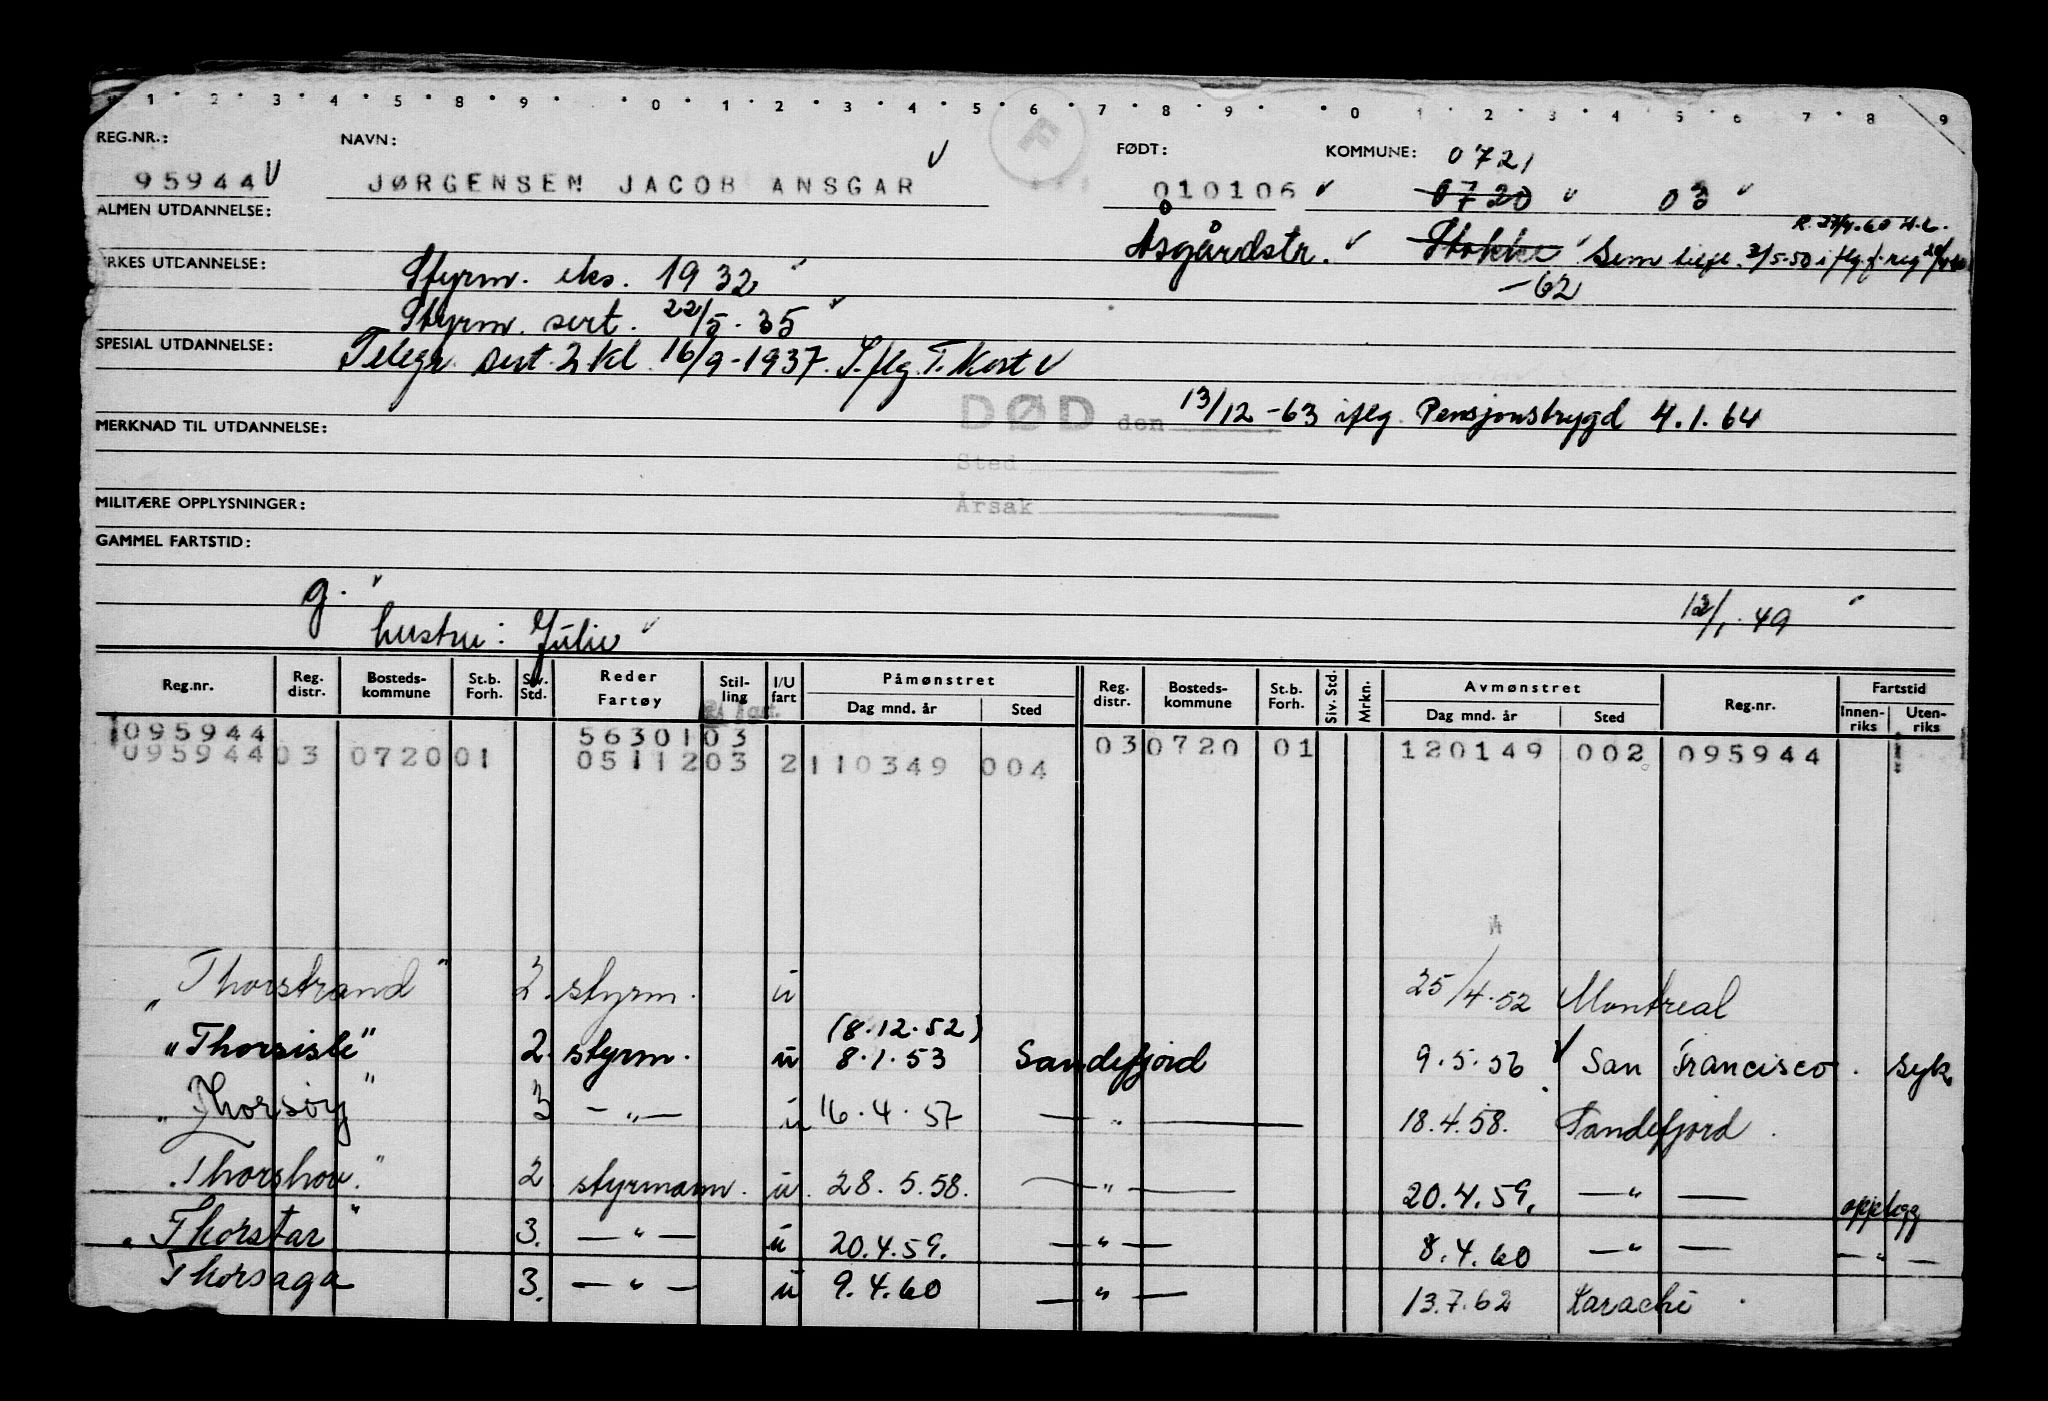 1 2 3 4 5 8 9 0 1 2 3 4 5 6 7 8 9 0 1 2 3 4 5 6 7 8 9
REG.NR.: NAVN: F FØDT: KOMMUNE: 0721
95944 JØRGENSEN JACOB ANSGAR 010106 0720 03
ALMEN UTDANNELSE: Åsgårdstr. Stokke Sem
-62
YRKES UTDANNELSE: Styrm. eks. 1932
Styrm. sert. 22/5.35
SPESIAL UTDANNELSE: Telegr. sert. 2 kl. 16/9-1937. I.flg. T. Kort
DØD den 13/12-63 iflg. Pensjonstrygd 4.1.64
MERKNAD TIL UTDANNELSE:
Sted
MILITÆRE OPPLYSNINGER:
Årsak
GAMMEL FARTSTID:
g. 12/1.49
hustru: Julie
Reg.nr. Reg. distr. Bosteds-kommune St.b. Forh. Siv. Std. Reder Fartøy Stil-ling I/U fart Påmønstret Dag mnd. år Sted Reg. distr. Bosteds-kommune St.b. Forh. Siv. Std. Mrkn. Avmønstret Dag mnd. år Sted Reg.nr. Fartstid Innen-riks Uten-riks
095944 5630103 03 0720 01 120149 002 095944
095944 03 0720 01 0511203 2 110349 004
"Thorstrand" 2. styrm. u 25/4.52 Montreal
(8.12.52)
"Thorsisle" 2. styrm. u 8.1.53 Sandefjord 9.5.56 San Francisco. syk.
"Thorsøy" 3 —„— u 16.4.57 —„— 18.4.58. Sandefjord.
"Thorshov." 2 styrmann. u. 28.5.58. —„— 20.4.59. —„— opplegg
"Thorstar" 3. —„— u 20.4.59. —„— 8.4.60 —„— —„—
Thorsaga 3. —„— u 9.4.60 —„— 13.7.62 Karachi.